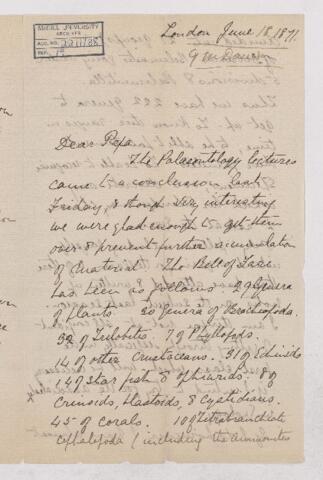 McGILL UNIVERSITY
ARCHIVES
ACC. NO. 2211/88
REF. 15
London June 18, 1871.
Dear Papa
The Palaeontology lectures
came to a conclusion last
Friday, & though very interesting
we were glad enough to get them
over & prevent further accumulation
of material. The Bill of Fare
has been as follows 29 genera
of plants. 20 genera of Brachiopoda.
32 of Trilobites. 7 of Phyllopods
14 of other crustaceans. 31 of Echinids
14 of star fish & ophiurids. 8 of
Crinoids, Blastoids, & Cystidians.
45 of corals. 10 of Tetrabranchiate
cephalopoda (including the ammonites